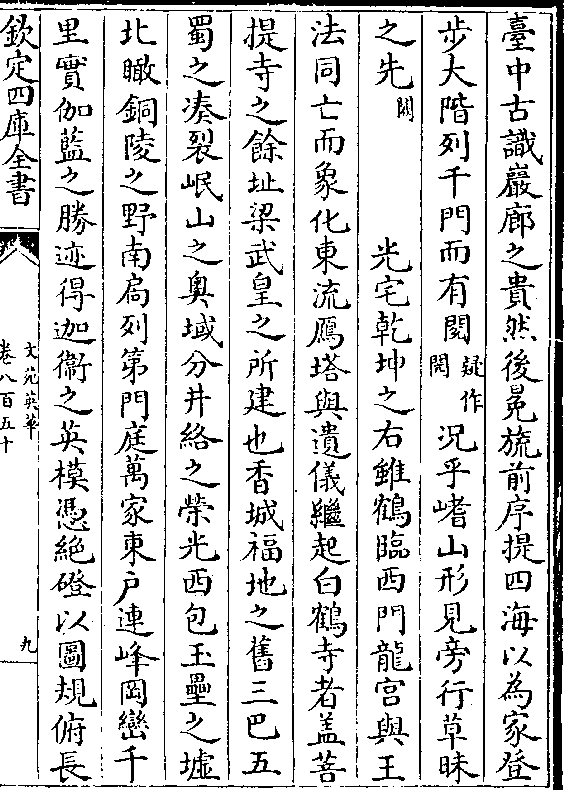 臺中古識巖廊之貴然後冕旒前序提四海以為家登
步大階列千門而有閱疑作閲況乎嶫山形見旁行草昧
之先闕光宅乾坤之右雖鶴臨西門龍宮與王
法同亡而象化東流鴈塔與遺儀繼起白鶴寺者盖菩
提寺之餘址梁武皇之所建也香城福地之舊三巴五
蜀之凑裂岷山之奥域分井絡之榮光西包玉壘之墟
北瞰銅陵之野南扃列第門庭萬家東户連峰岡巒千
里實伽藍之勝迹得迦衞之英模憑絶磴以圖規俯長
欽定四庫全書
文苑英華
卷八百五十
九